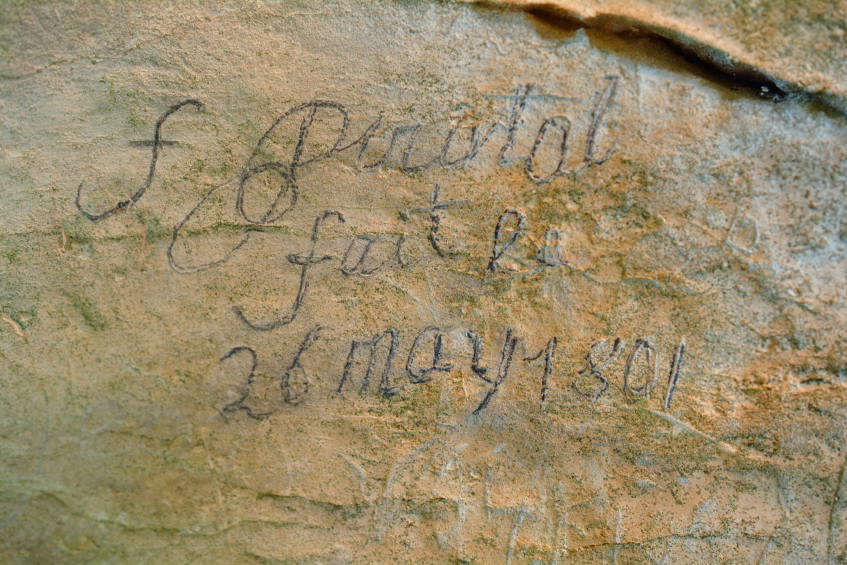 f Pinatol
fait le
26 may 1801